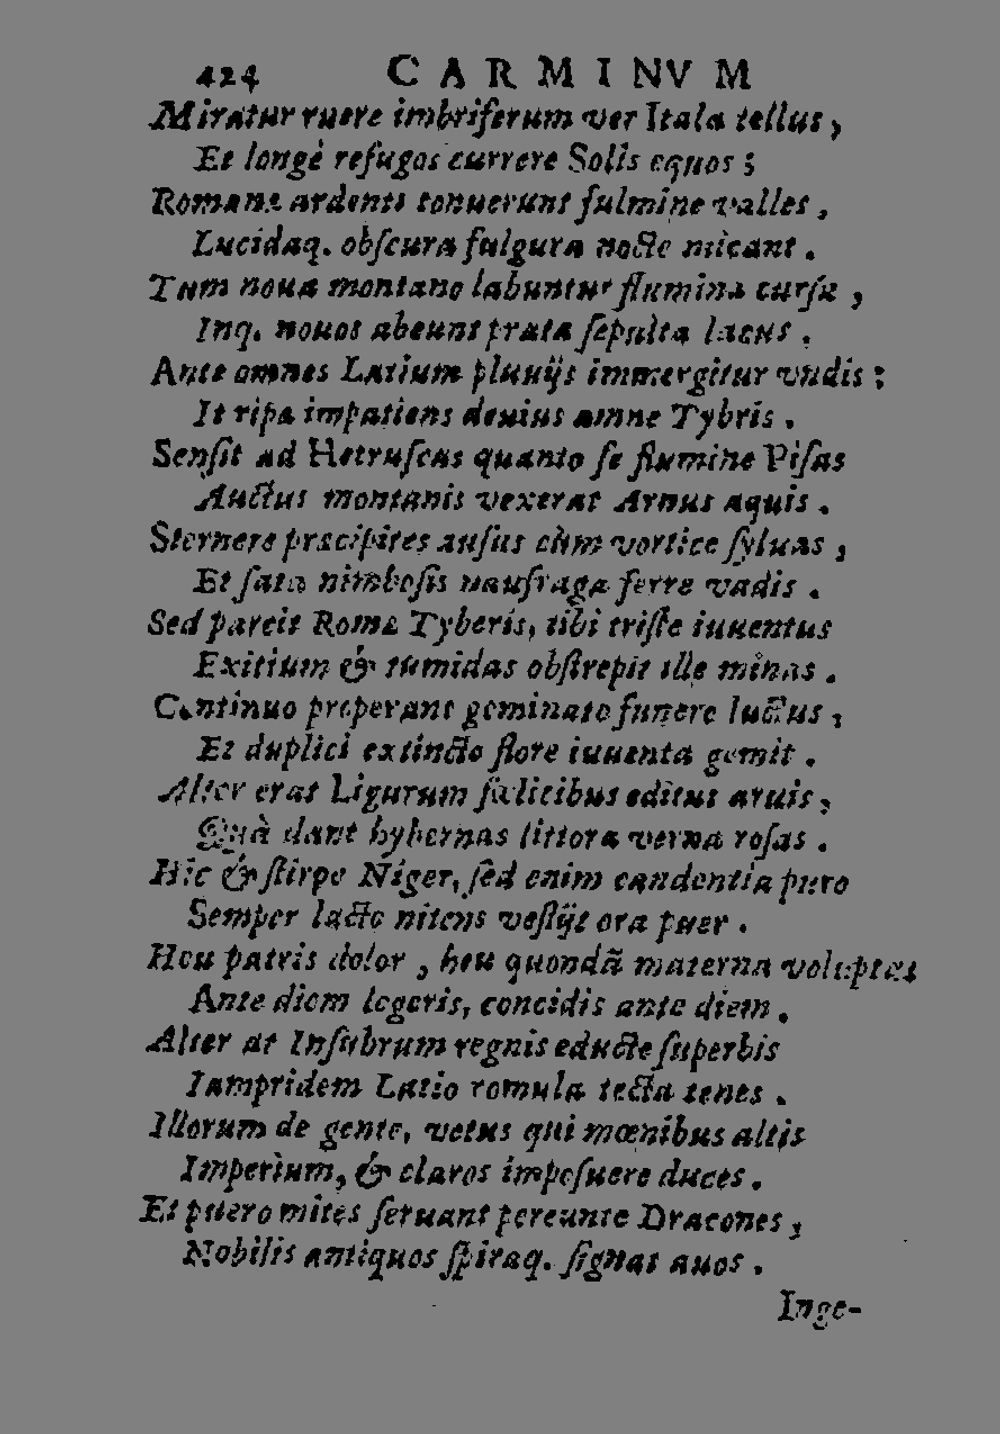 424 CARMINVM
Miratur ruere imbriferum ver Itala tellus,
Et longè refugos currere Solis equos;
Romane ardenti tonuerunt fulmine valles,
Lucidaq. obscura fulgura nocte micant.
Tum noua montano labuntur flumina cursu,
Inq. nouos abeunt prata sepulta lacus.
Ante omnes Latium pluuijs immergitur vndis;
It ripa impatiens deuius amne Tybris.
Sensit ad Hetruscas quanto se flumine Pisas
Auctus montanis vexerat Arnus aquis.
Sternere præcipites ausus cùm vortice syluas,
Et sata nimbosis naufraga ferre vadis.
Sed parcit Romæ Tyberis, tibi triste iuuentus
Exitium & tumidas obstrepit ille minas.
Continuo properant geminato funere luctus,
Et duplici extincto flore iuuenta gemit.
Alter erat Ligurum fælicibus editus aruis,
Quà dant hybernas littora verna rosas.
Hic & stirpe Niger, sed enim candentia puro
Semper lacte nitens vestijt ora puer.
Heu patris dolor, heu quondã materna voluptas
Ante diem legeris, concidis ante diem.
Alter at Insubrum regnis educte superbis
Iampridem Latio romula tecta tenes.
Illorum de gente, vetus qui mœnibus altis
Imperium, & claros imposuere duces.
Et puero mites seruant pereunte Dracones,
Nobilis antiquos spiraq. signat auos.
Inge-